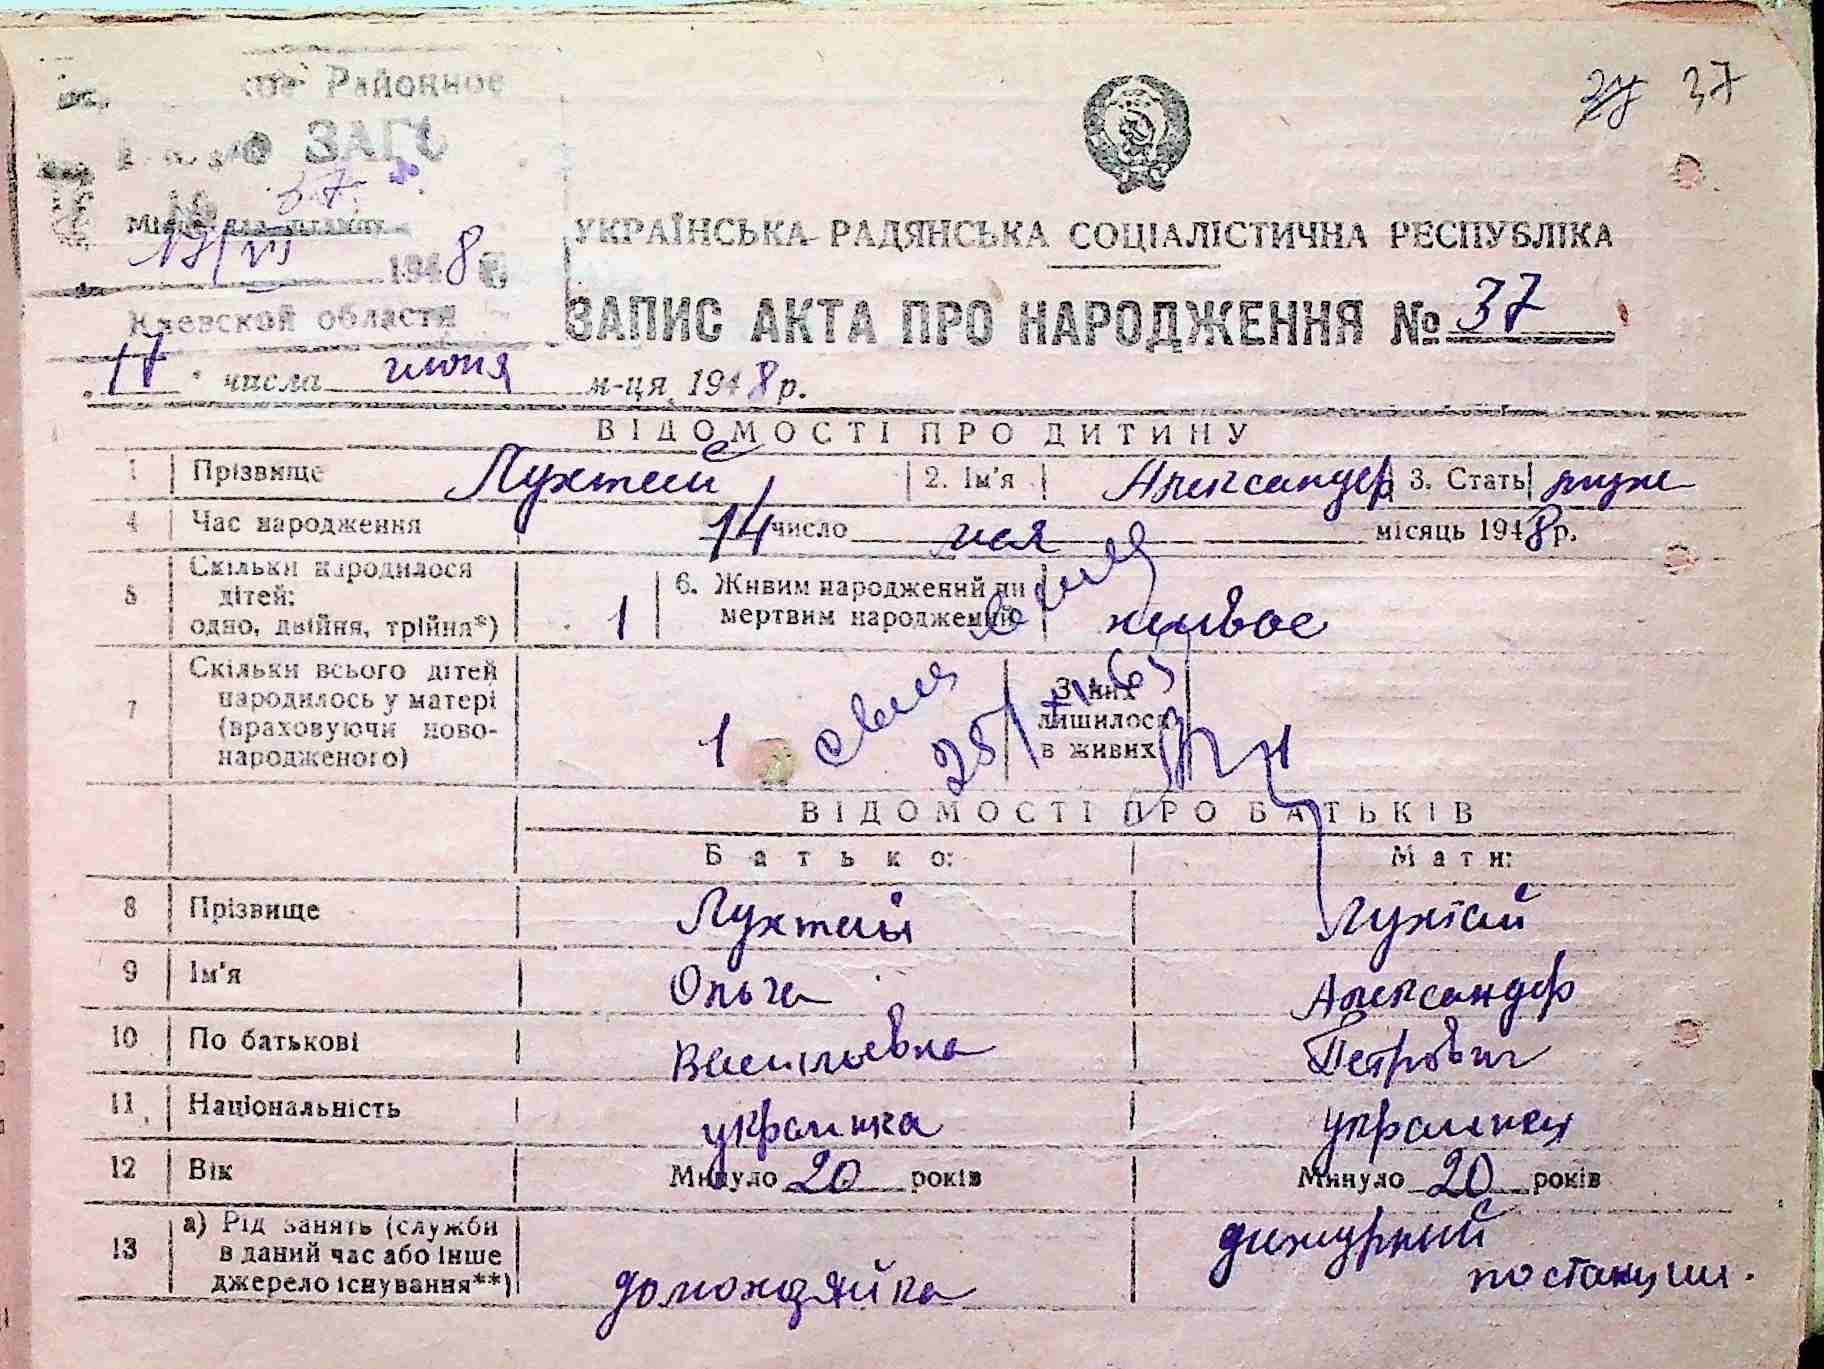 Районное
ЗАГС
№ 37
37
17/VI 1948 г.
УКРАЇНСЬКА РАДЯНСЬКА СОЦІАЛІСТИЧНА РЕСПУБЛІКА
Киевской области
ЗАПИС АКТА ПРО НАРОДЖЕННЯ № 37
17 числа июня м-ця 1948 р.
ВІДОМОСТІ ПРО ДИТИНУ
1 Прізвище Лухтай 2. Ім'я Александер 3. Стать муж
4 Час народження 14 число мая місяць 1948 р.
5 Скільки народилося
дітей:
одно, двійня, трійня*) 1
6. Живим народжений чи
мертвим народжений живое
7 Скільки всього дітей
народилось у матері
(враховуючи ново-
народженого) 1
З них
лишилося
в живих
ВІДОМОСТІ ПРО БАТЬКІВ
Батько: Мати:
8 Прізвище Лухтай Лухтай
9 Ім'я Ольга Александер
10 По батькові Васильевна Петрович
11 Національність украинка украинец
12 Вік Минуло 20 років Минуло 20 років
13 а) Рід занять (служби
в даний час або інше
джерело існування**) домохозяйка
дижурный
по станции.